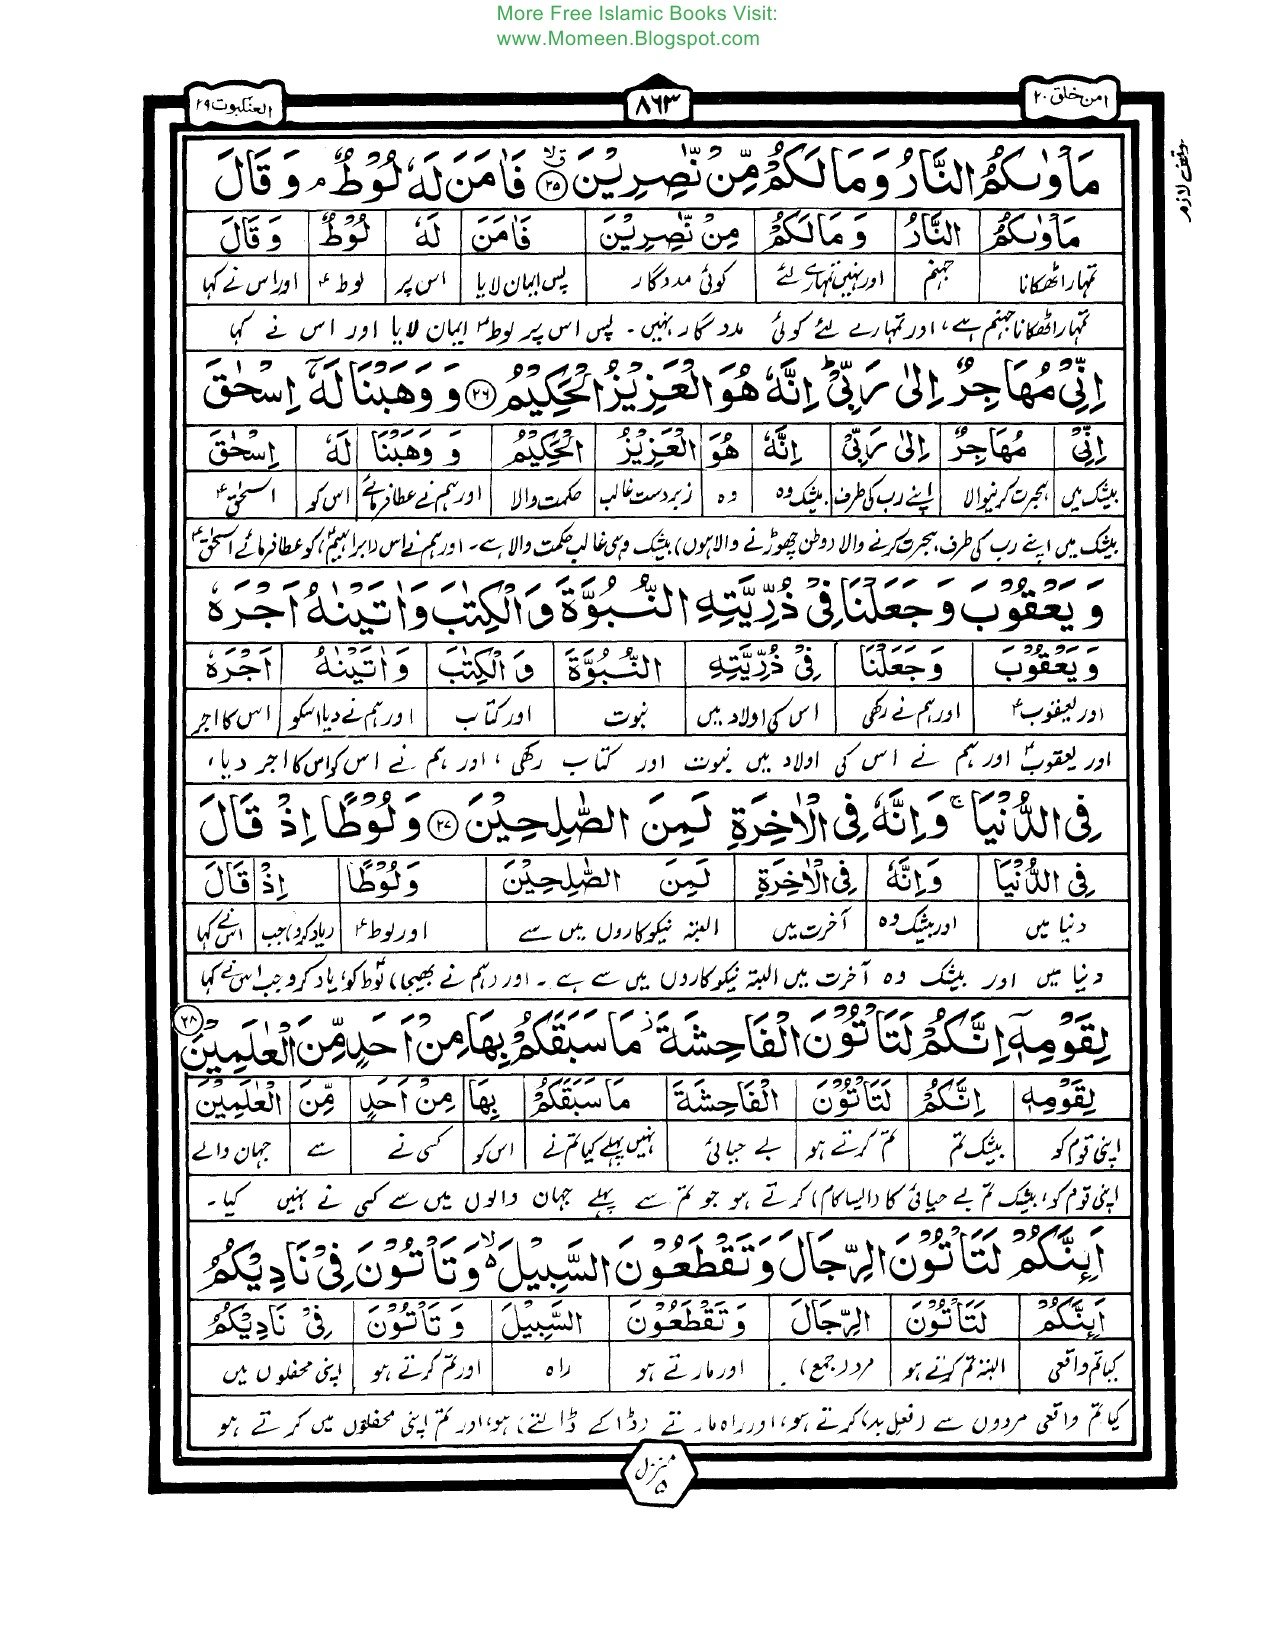 More Free Islamic Books Visit:
www.Momeen.Blogspot.com
امن خلق ۲۰
۸۶۳
العنکبوت ۲۹
وقف لازم
مَأْوٰىكُمُ النَّارُ وَمَا لَكُمْ مِّنْ نّٰصِرِيْنَ ۲۵ فَاٰمَنَ لَهٗ لُوْطٌ ۘ وَقَالَ
مَأْوٰىكُمُ النَّارُ وَمَا لَكُمْ مِنْ نّٰصِرِيْنَ فَاٰمَنَ لَهٗ لُوْطٌ وَقَالَ
تمہارا ٹھکانا جہنم اور نہیں تمہارے لئے کوئی مددگار پس ایمان لایا اس پر لوط ؑ اور اس نے کہا
تمہارا ٹھکانا جہنم ہے، اور تمہارے لئے کوئی مددگار نہیں۔ پس اس پر لوط ؑ ایمان لایا اور اس نے کہا
اِنِّيْ مُهَاجِرٌ اِلٰى رَبِّيْ ؕ اِنَّهٗ هُوَ الْعَزِيْزُ الْحَكِيْمُ ۲۶ وَوَهَبْنَا لَهٗٓ اِسْحٰقَ
اِنِّيْ مُهَاجِرٌ اِلٰى رَبِّيْ اِنَّهٗ هُوَ الْعَزِيْزُ الْحَكِيْمُ وَوَهَبْنَا لَهٗ اِسْحٰقَ
بیشک میں ہجرت کرنیوالا اپنے رب کی طرف بیشک وہ وہ زبردست غالب حکمت والا اور ہم نے عطا فرمائے اس کو اسحٰق ؑ
بیشک میں اپنے رب کی طرف ہجرت کرنے والا (وطن چھوڑنے والا ہوں) بیشک وہی غالب حکمت والا ہے۔ اور ہم نے اس (ابراہیم ؑ) کو عطا فرمائے اسحٰق ؑ
وَيَعْقُوْبَ وَجَعَلْنَا فِيْ ذُرِّيَّتِهِ النُّبُوَّةَ وَالْكِتٰبَ وَاٰتَيْنٰهُ اَجْرَهٗ
وَيَعْقُوْبَ وَجَعَلْنَا فِيْ ذُرِّيَّتِهِ النُّبُوَّةَ وَالْكِتٰبَ وَاٰتَيْنٰهُ اَجْرَهٗ
اور یعقوب ؑ اور ہم نے رکھی اس کی اولاد میں نبوت اور کتاب اور ہم نے دیا اسکو اس کا اجر
اور یعقوب ؑ اور ہم نے اس کی اولاد میں نبوت اور کتاب رکھی، اور ہم نے اس کو اس کا اجر دیا،
فِي الدُّنْيَا ۚ وَاِنَّهٗ فِي الْاٰخِرَةِ لَمِنَ الصّٰلِحِيْنَ ۲۷ وَلُوْطًا اِذْ قَالَ
فِي الدُّنْيَا وَاِنَّهٗ فِي الْاٰخِرَةِ لَمِنَ الصّٰلِحِيْنَ وَلُوْطًا اِذْ قَالَ
دنیا میں اور بیشک وہ آخرت میں البتہ نیکوکاروں میں سے اور لوط ؑ (یاد کرو) جب اس نے کہا
دنیا میں اور بیشک وہ آخرت میں البتہ نیکوکاروں میں سے ہے۔ اور (ہم نے بھیجا) لوط ؑ کو، یاد کرو جب اس نے کہا
لِقَوْمِهٖٓ اِنَّكُمْ لَتَأْتُوْنَ الْفَاحِشَةَ ۡ مَا سَبَقَكُمْ بِهَا مِنْ اَحَدٍ مِّنَ الْعٰلَمِيْنَ ۲۸
لِقَوْمِهٖٓ اِنَّكُمْ لَتَأْتُوْنَ الْفَاحِشَةَ مَا سَبَقَكُمْ بِهَا مِنْ اَحَدٍ مِّنَ الْعٰلَمِيْنَ
اپنی قوم کو بیشک تم تم کرتے ہو بے حیائی نہیں پہلے کیا تم نے اس کو کسی نے سے جہان والے
اپنی قوم کو، بیشک تم بے حیائی کا (ایسا کام) کرتے ہو جو تم سے پہلے جہان والوں میں سے کسی نے نہیں کیا۔
اَئِنَّكُمْ لَتَأْتُوْنَ الرِّجَالَ وَتَقْطَعُوْنَ السَّبِيْلَ ۙ وَتَأْتُوْنَ فِيْ نَادِيْكُمُ
اَئِنَّكُمْ لَتَأْتُوْنَ الرِّجَالَ وَتَقْطَعُوْنَ السَّبِيْلَ وَتَأْتُوْنَ فِيْ نَادِيْكُمُ
کیا تم واقعی البتہ تم کرتے ہو مرد (جمع) اور مارتے ہو راہ اور تم کرتے ہو اپنی محفلوں میں
کیا تم واقعی مردوں سے (فعل بد) کرتے ہو، اور راہ مارتے (ڈاکے ڈالتے) ہو، اور تم اپنی محفلوں میں کرتے ہو
منزل ۵